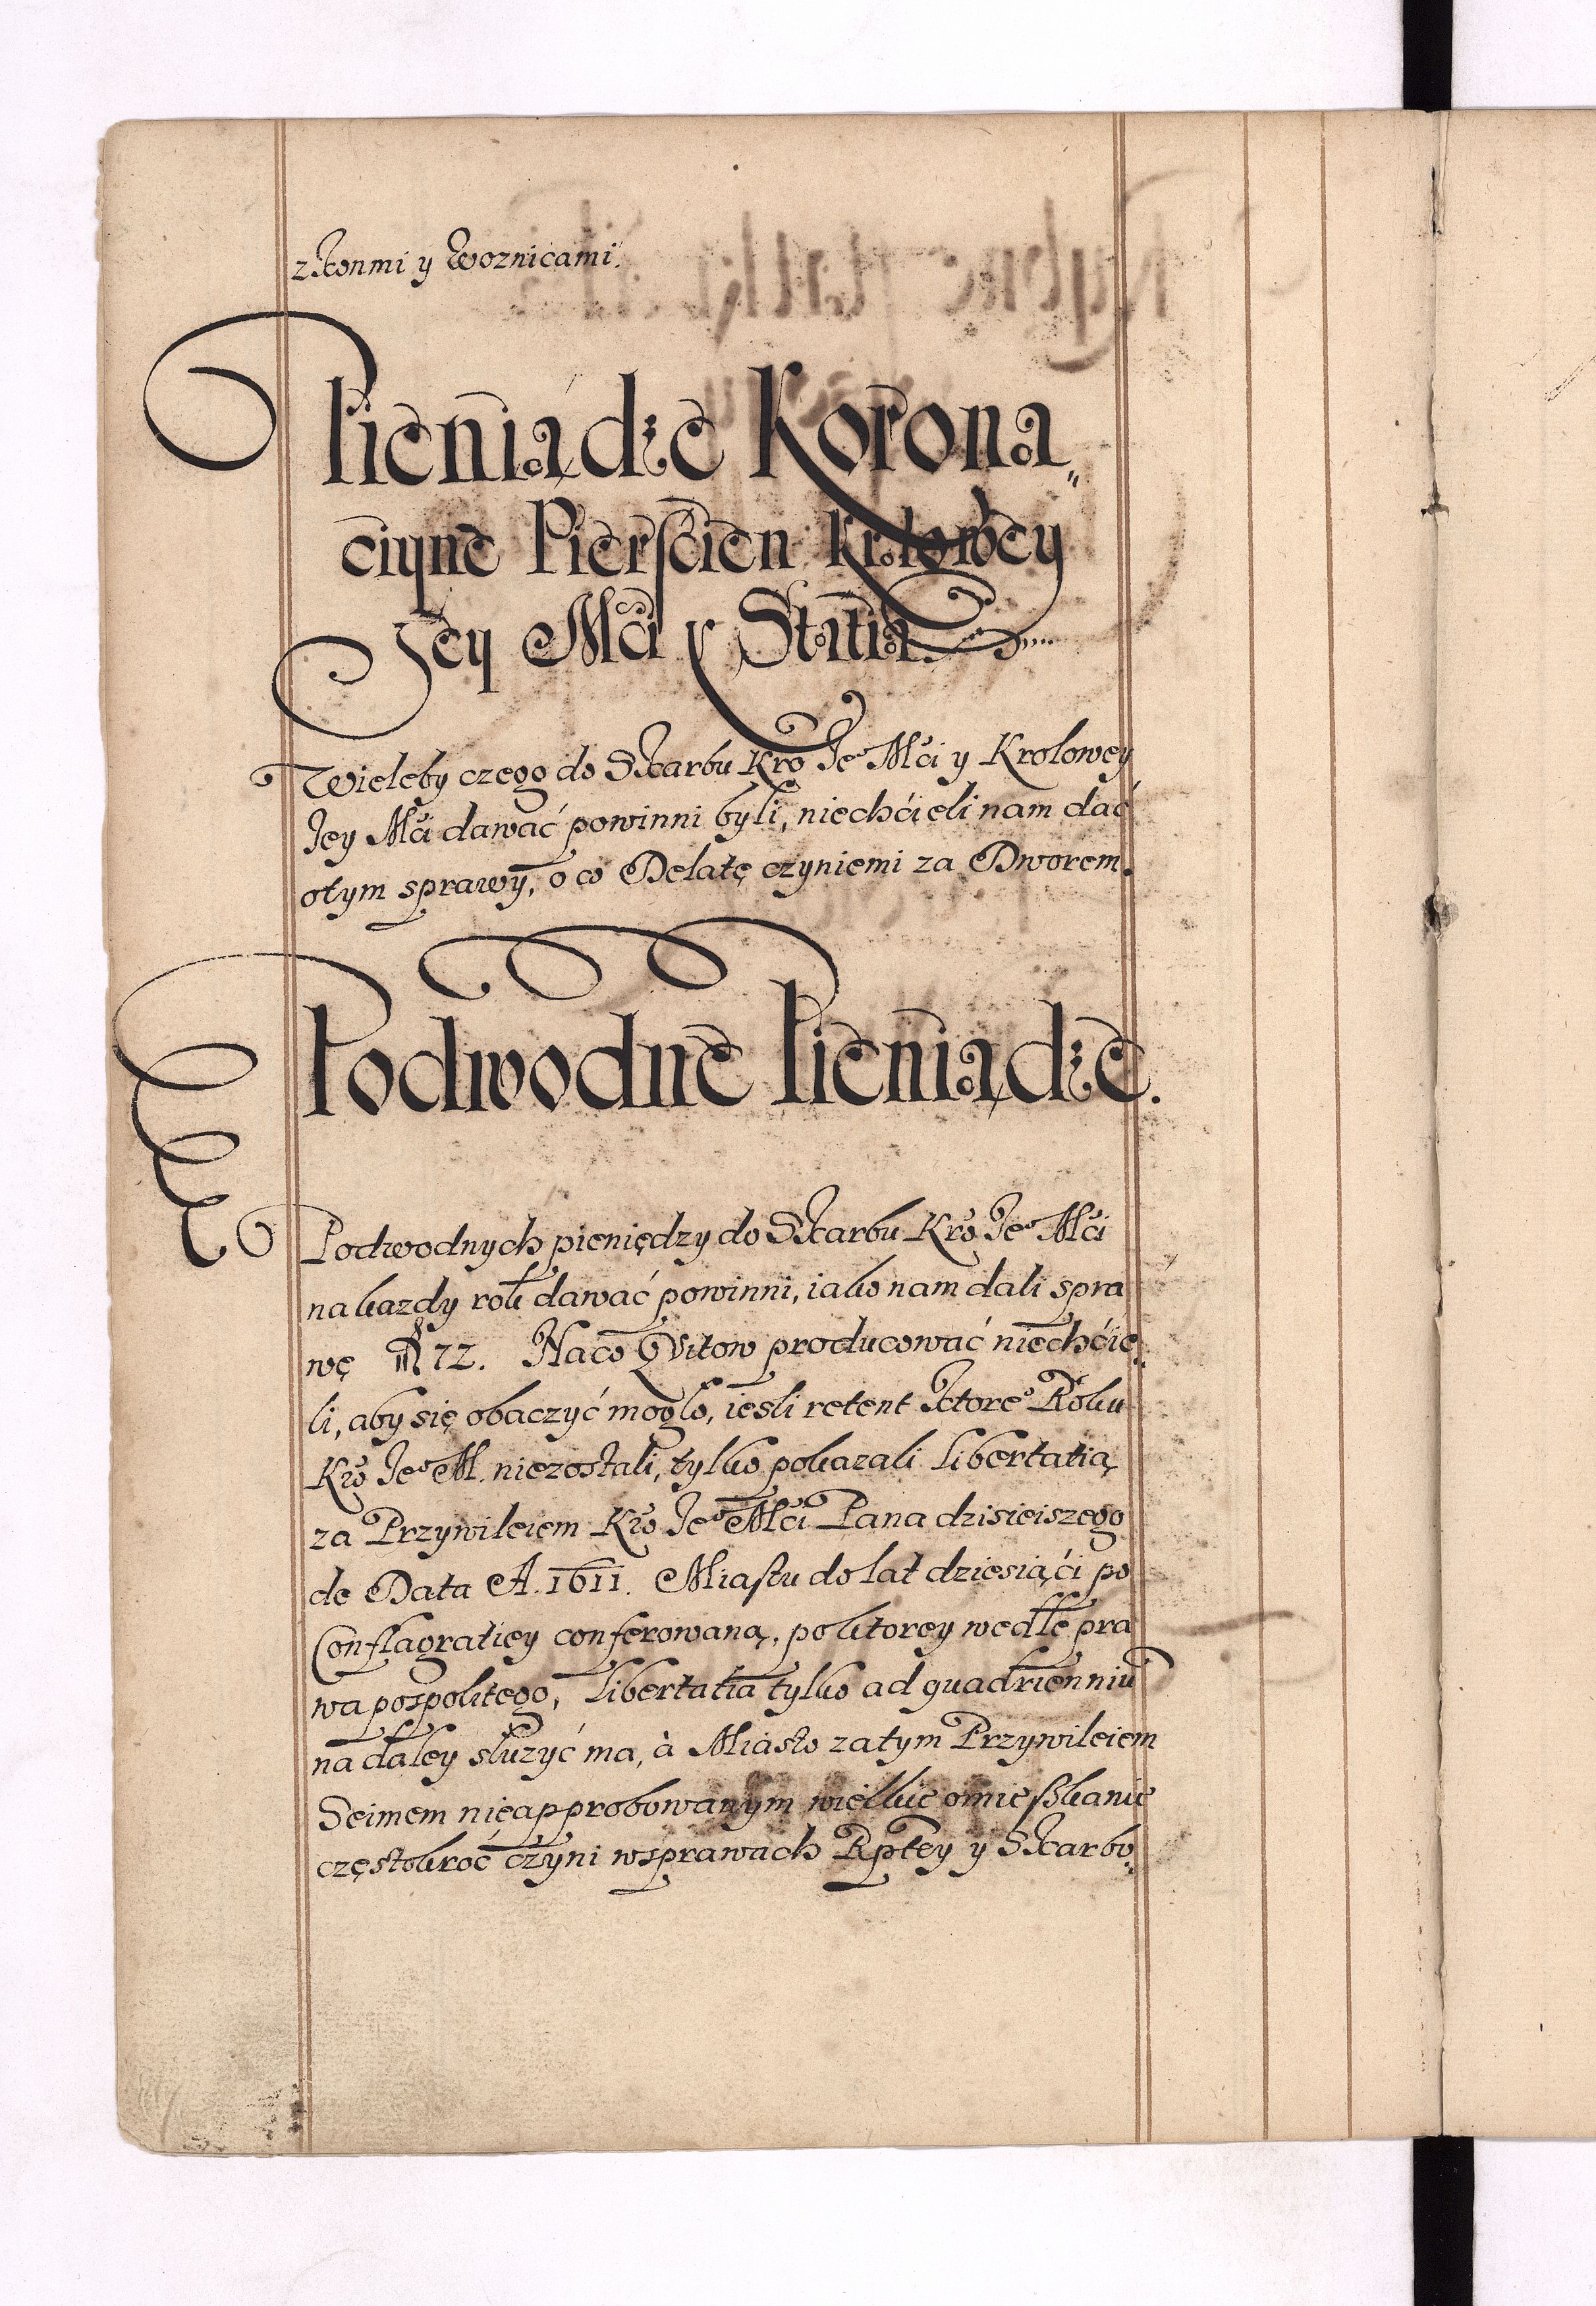 z konmi y Woznicami.
Pieniądze Korona„
ciyne Pierscien Krolowey
Jey Mći y Statia
Wieleby czego do Skarbu Kro Je° Mći y Krolowey
Jey Mći dawać powinni byli, niechćieli nam dać
otym sprawy, o co Delatę czyniemi za Dworem.
Podwodne Pieniądze.
Podwodnych pieniędzy do Skarbu Kro Je° Mći
na kazdy rok dawać powinni, iako nam dali spra
wę 72. Naco Qvitow producować niechćie„
li, aby się obaczyć mogło, iesli retent ktore° Roku
Kro Je° M. niezostali, tylko pokazali Libertatią
za Przywileiem Kro Je° Mći Pana dzisieiszego
de Data A. 1611. Miastu do lat dziesiąći po
Conflagratiey conferowaną, po ktorey wedle pra
wa pospolitego, Libertatia tylko ad quadrienniū
na daley słuzyć ma, à Miasto zatym Przywileiem
Seimem nieapprobowanym wielkie omieszkanie
częstokroć czyni wsprawach Rptey y Skarbo„